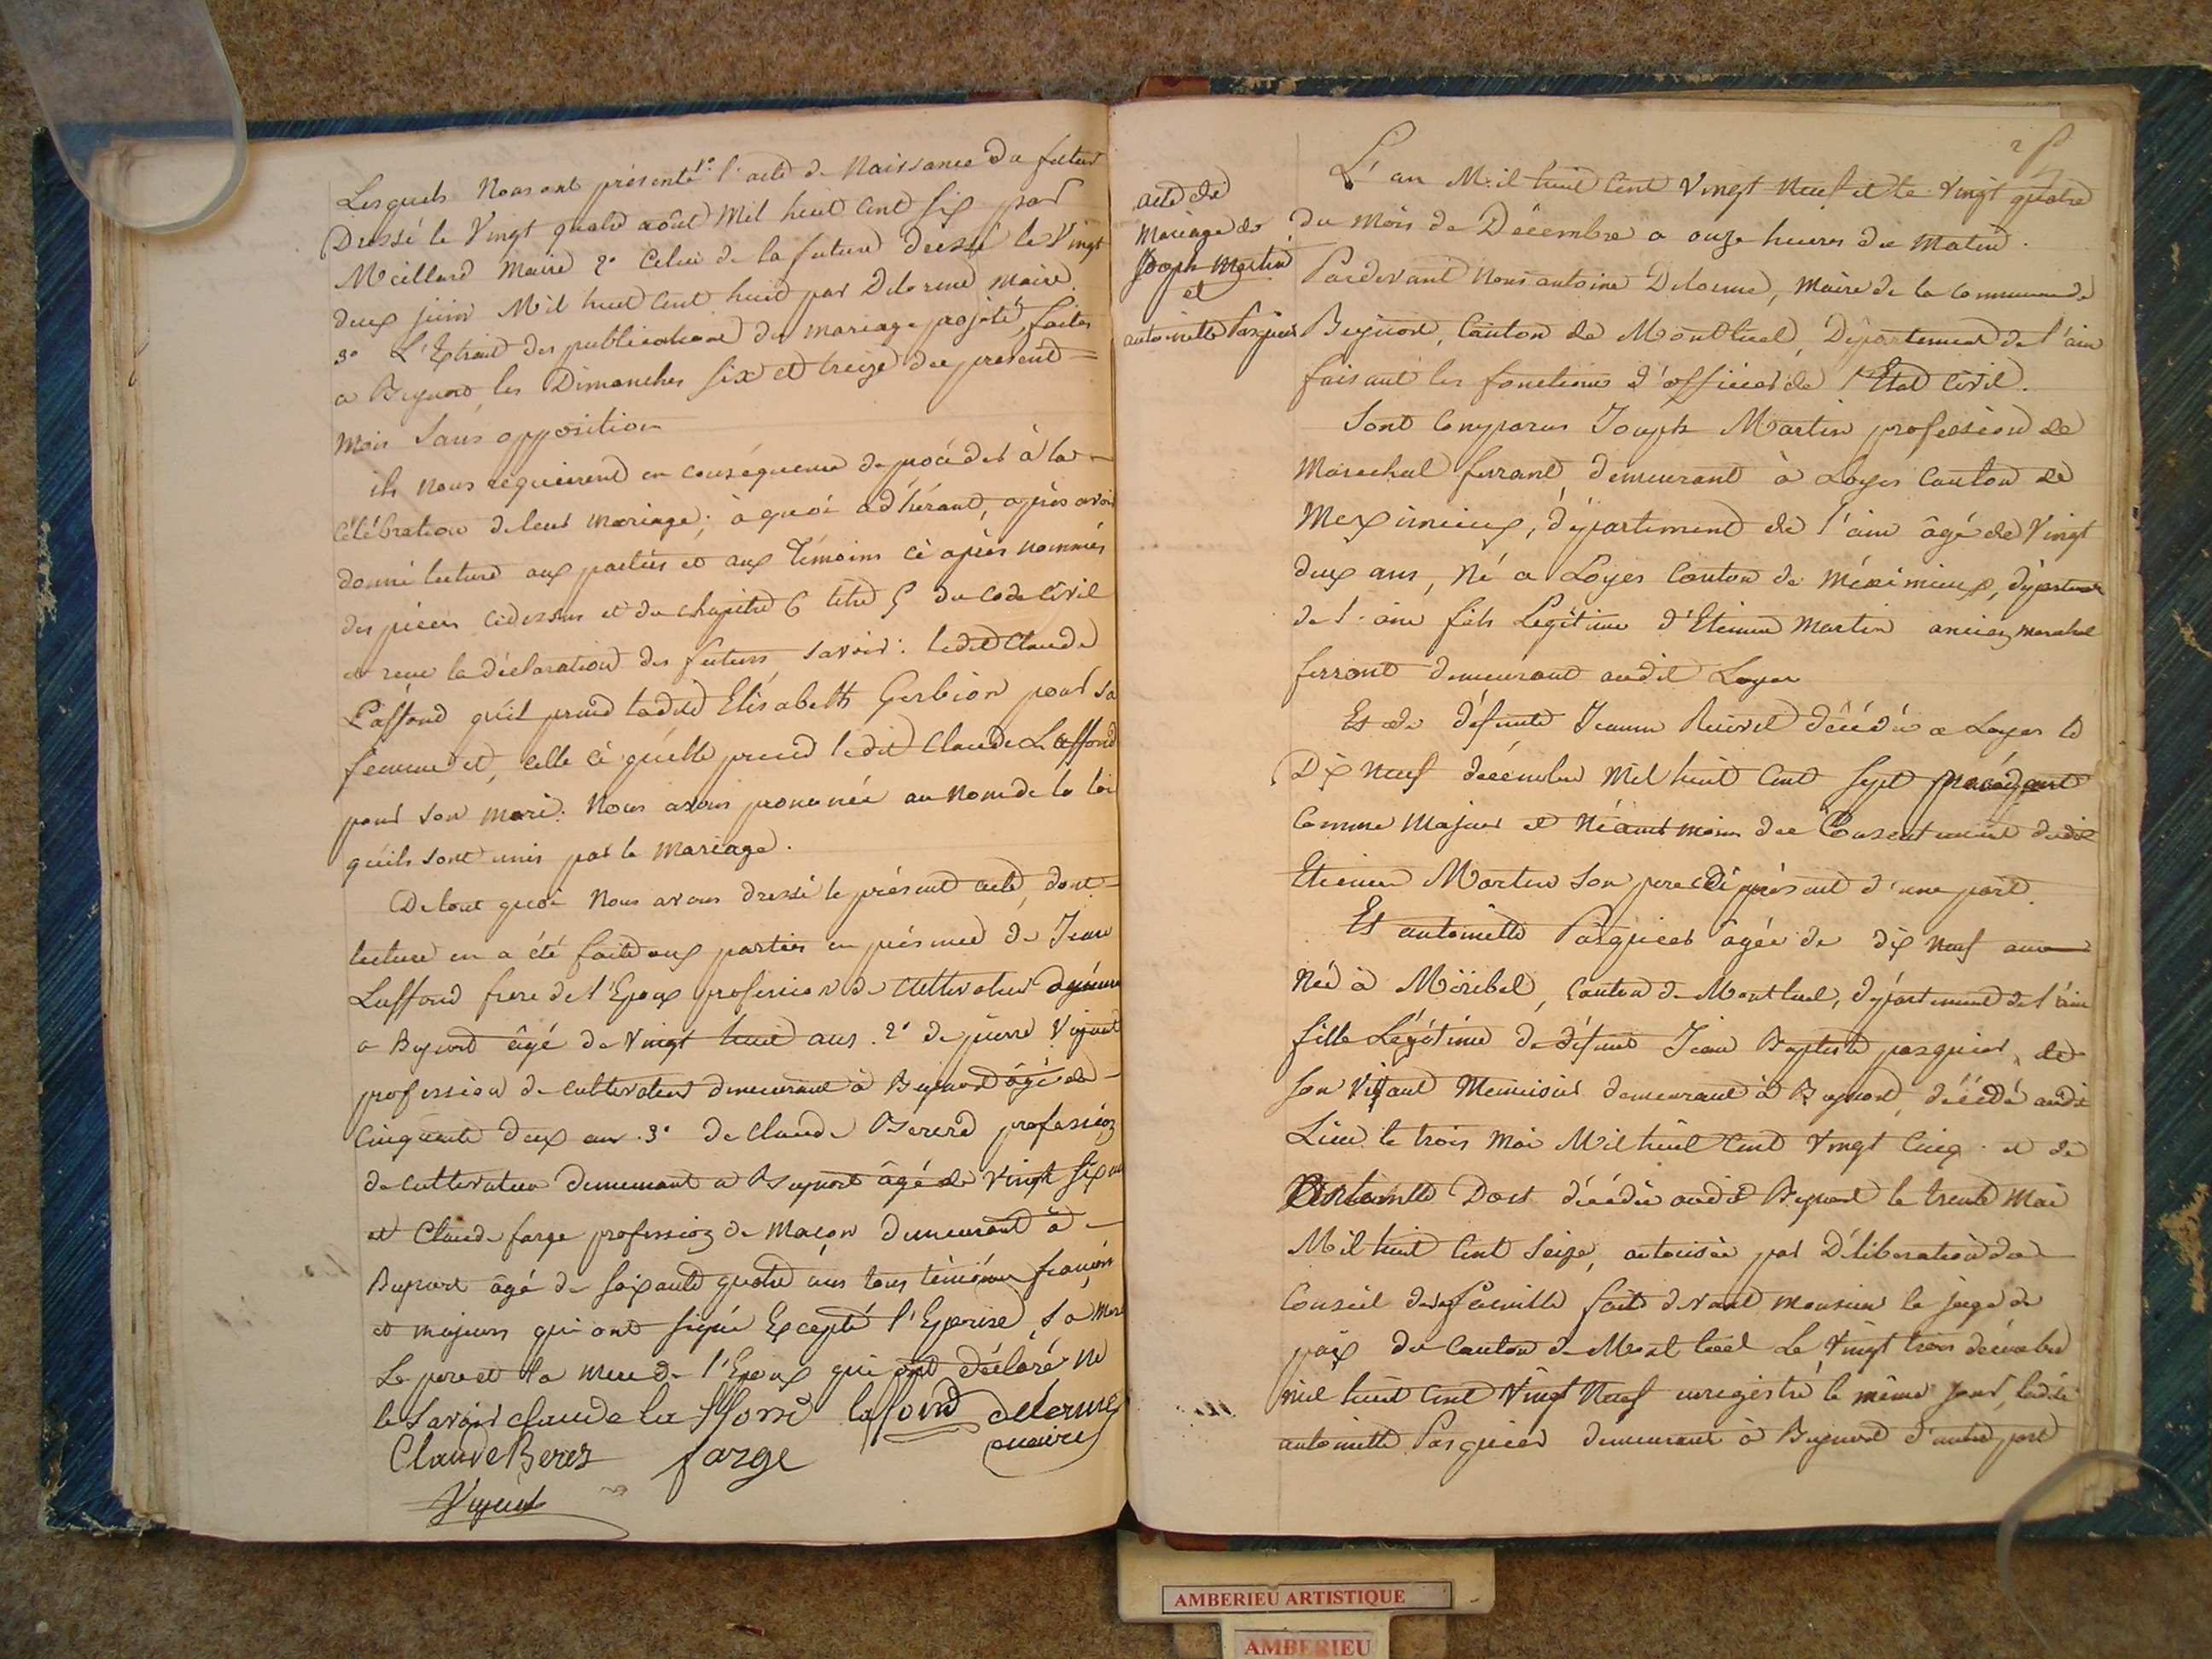 Lesquels Nous ont présenté 1° l'acte de Naissance du futur
Dressé le Vingt quatre août Mil huit Cent six par
Meillard Maire 2° Celui de la future dressé le Vingt
deux juin Mil huit Cent huit par Delorme Maire.
3° L'Extrait des publications du mariage projeté, faites
a Beynost les Dimanches six et treize du présent
mois Sans opposition
ils nous requierent en conséquence de procéder à la
célébration de leur mariage; à quoi adhérant, après avoir
donné lecture aux parties et aux Témoins ci après nommés
des pièces cidessus et du chapitre 6 titre 5 du code Civil
et reçu la déclaration des futurs savoir: ledit Claude
Laffond qu'il prend ladite Elisabeth Gerbion pour sa
femme et, celle ci qu'elle prend ledit Claude Laffond
pour son mari. Nous avons prononcé au nom de la loi
qu'ils sont unis par le mariage.
De tout quoi Nous avons dressé le présent acte, dont
lecture en a été faite aux parties en présence de Jean
Laffond frere de l'Epoux profession de Cultivateur
a Beynost âgé de Vingt huit ans. 2° de pierre
profession de cultivateur demeurant à Beynost âgé de
Cinquante deux ans. 3° de Claude Bererd profession
de cultivateur demeurant a Beynost âgé de Vingt six ans
et Claude farge profession de Maçon demeurant à
Beynost âgé de soixante quatre ans tous témoins français
et majeurs qui ont signé Excepté l'Epouse, sa mere
Le pere et la mere de l'Epoux qui ont déclaré ne
le Savoir claude la ffond laffond delorme
Claude Berer farge maire
acte de
Mariage de
Joseph Martin
et
antoinette Pasquier
L'an Mil huit Cent Vingt Neuf et le Vingt quatre
du Mois de Décembre a onze heures du Matin.
Pardevant Nous antoine Delorme, Maire de la Commune de
Beynost, Canton de Montluel, Département de l'ain
faisant les fonctions d'officier de l'Etat Civil.
Sont Comparus Joseph Martin profession de
Marechal ferrant demeurant à Loyes Canton de
Meximieux, département de l'ain âgé de Vingt
deux ans, Né a Loyes Canton de Méximieux, département
de l'ain fils Légitime d'Etienne Martin ancien marechal
ferrant demeurant audit Loyes
Et de défunte Jeanne décédée a Loyes le
Dix Neuf décembre Mil huit Cent sept procédant
Comme Majeur et Néantmoins du Consentement dudit
Etienne Martin son pere ici présent d'une part.
Et antoinette Pasquier âgée de dix Neuf ans
Née à Miribel, Canton de Montluel, département de l'ain
fille Légitime de défunt Jean Baptiste pasquier, de
son Vivant Menuisier demeurant à Beynost, décédé audit
Lieu le trois Mai Mil huit Cent Vingt Cinq et de
Antoinette Dost décédée audit Beynost le trente Mai
Mil huit Cent Seize, autorisée par Déliberation de
Conseil de famille fait devant monsieur le juge de
paix du Canton de Montluel Le Vingt trois décembre
mil huit Cent Vingt Neuf enregistré le même jour, ladite
antoinette Pasquier demeurant à Beynost d'autre part
AMBERIEU ARTISTIQUE
AMBERIEU